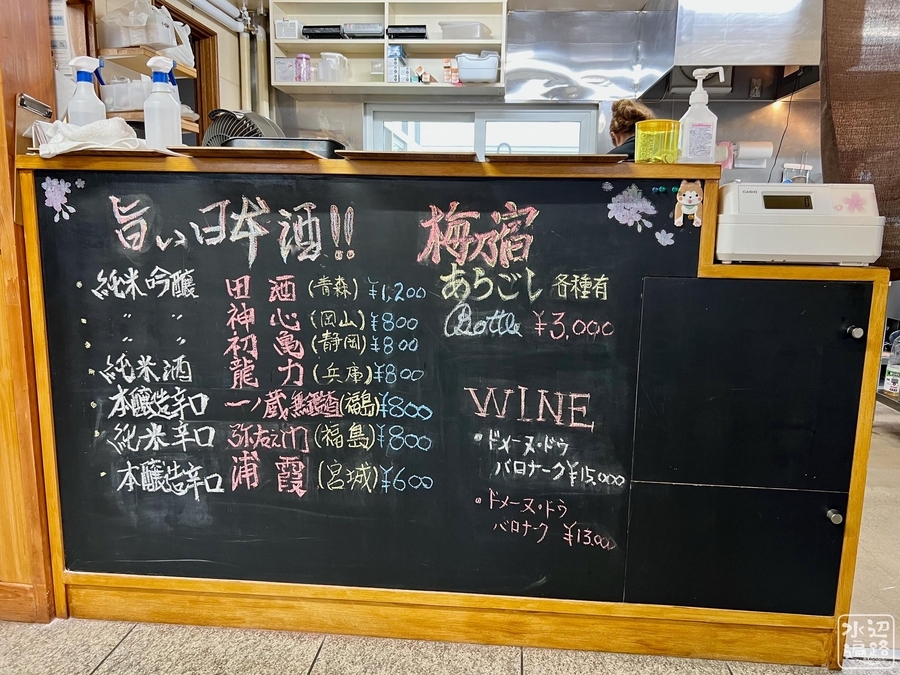 旨い日本酒!!
・純米吟醸 田酒 (青森) ¥1,200
・〃 〃 神心 (岡山) ¥800
・〃 〃 初亀 (静岡) ¥800
・純米酒 龍力 (兵庫) ¥800
・本醸造辛口 一ノ蔵無鑑査(福島) ¥800
・純米辛口 弥右ェ門 (福島) ¥800
・本醸造辛口 浦霞 (宮城) ¥600
梅乃宿
あらごし 各種有
Bottle ¥3,000
WINE
・ドメーヌ・ドゥ
バロナーク ¥15,000
・ドメーヌ・ドゥ
バロナーク ¥13,000
CASIO
水辺
遍路